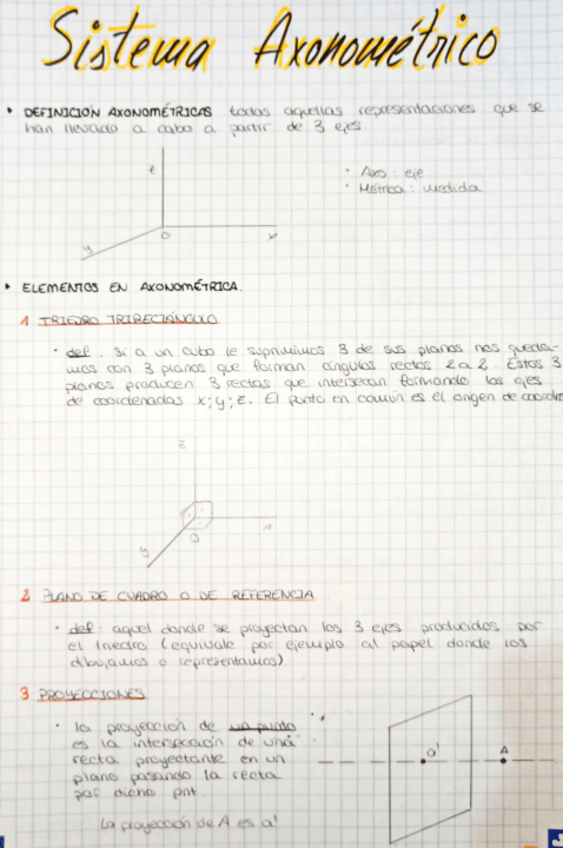 Sistema Axonométrico
• DEFINICIÓN AXONOMÉTRICAS todas aquellas representaciones que se
han llevado a cabo a partir de 3 ejes.
z
• Axo: eje
• Métrica: medida
y
O
x
• ELEMENTOS EN AXONOMÉTRICA.
1 TRIEDRO TRIRECTÁNGULO
• def. Si a un cubo le suprimimos 3 de sus planos nos queda-
mos con 3 planos que forman ángulos rectos 2 a 2. Estos 3
planos producen 3 rectas que intersecan formando los ejes
de coordenadas x; y; z. El punto en común es el origen de coorden
z
x
O
y
2 PLANO DE CUADRO O DE REFERENCIA
• def: aquel donde se proyectan los 3 ejes producidos por
el triedro (equivale por ejemplo al papel donde los
dibujamos o representamos)
3 PROYECCIONES
• la proyección de un punto
es la intersección de una
recta proyectante en un
plano pasando la recta
por dicho pnt.
La proyección de A es a'
a'
A